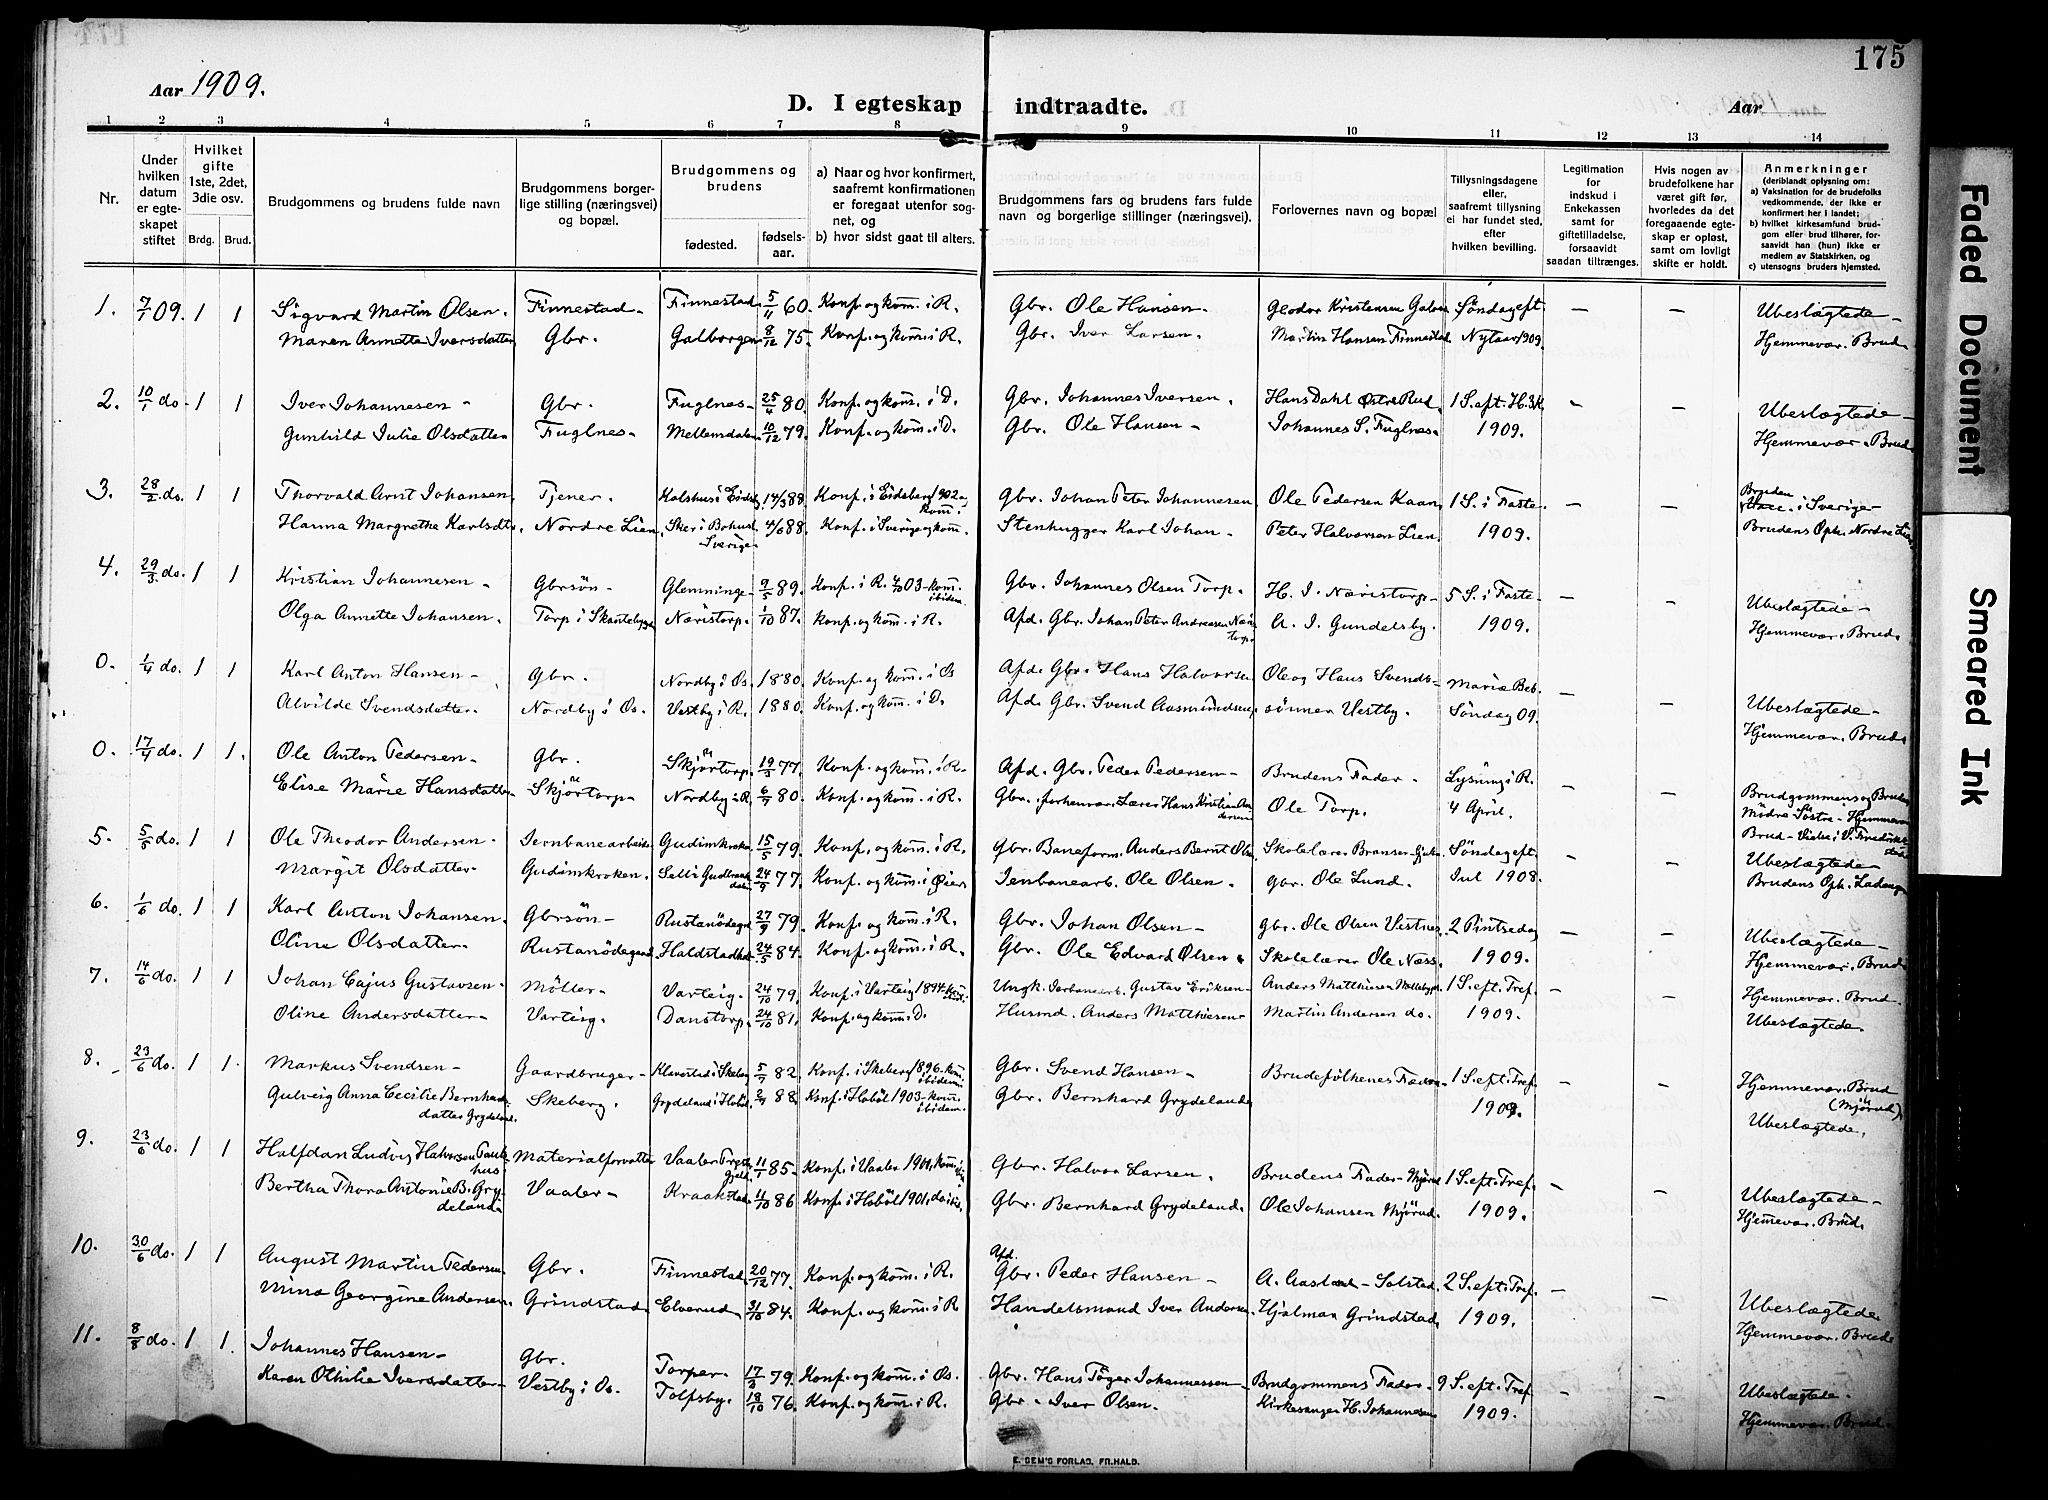 175
Aar 1909.
D. I egteskap indtraadte.
Aar
1 2 3 4 5 6 7 8 9 10 11 12 13 14
Nr.
Under hvilken datum er egteskapet stiftet
Hvilket gifte 1ste, 2det, 3die osv.
Brdg. Brud.
Brudgommens og brudens fulde navn
Brudgommens borgerlige stilling (næringsvei) og bopæl.
Brudgommens og brudens
fødested. fødselsaar.
a) Naar og hvor konfirmert, saafremt konfirmationen er foregaat utenfor sognet, og
b) hvor sidst gaat til alters.
Brudgommens fars og brudens fars fulde navn og borgerlige stillinger (næringsvei).
Forlovernes navn og bopæl
Tillysningsdagene eller, saafremt tillysning ei har fundet sted, efter hvilken bevilling.
Legitimation for indskud i Enkekassen samt for giftetilladelse, forsaavidt saadan tiltrænges.
Hvis nogen av brudefolkene har været gift før, hvorledes da det foregaaende egteskap er opløst, samt om lovligt skifte er holdt.
Anmerkninger
(deriblandt oplysning om:
a) Vaksination for de brudefolks vedkommende, der ikke er konfirmert her i landet;
b) hvilket kirkesamfund brudgom eller brud tilhører, forsaavidt han (hun) ikke er medlem av Statskirken, og
c) utensogns bruders hjemsted.
1. 7/1 09. 1 1 Sigvard Martin Olsen. Finnestad- Finnestad. 5/11 60. Konf. og kom. i R. Gbr. Ole Hansen- Søndag eft. - - Ubeslægtede-
Maren Annette Iversdatter Gbr. Galborgen 8/12 75. Konf. og kom. i R. Gbr. Iver Larsen. Martin Hansen Finnestad Nytaar 1909. Hjemmevær. Brud.
2. 10/1 do. 1 1 Iver Johannesen- Gbr. Fuglnes- 25/4 80. Konf. og kom. i D. Gbr. Johannes Iversen. Hans Dahl Østre Rud. 1 S. eft. H. 3 K. - - Ubeslægtede-
Gunhild Julie Olsdatter Fuglnes- Mellemdalen 10/12 79. Konf. og kom. i D. Gbr. Ole Hansen- Johannes S. Fuglnes- 1909. Hjemmevær. Brud.
3. 28/2 do. 1 1 Thorvald Arnt Johansen Tjener. 14/3 88. Konf. i Eidsberg 1902 og kom. i Gbr. Johan Peter Johannesen Ole Pedersen Kaan 1 S. i Faste- - - Bruden i Sverige
Hanna Margretha Karlsdtr. Nordre Lien. Skee i Bohus Sverige- 4/6 88. Konf. i Sverige og kom. Stenhugger Karl Johan- Peter Halvorsen Lien. 1909. Brudens Oph. Nordre Lien
4. 29/3 do. 1 1 Kristian Johannesen- Gbrsøn- Glemminge- 9/5 89. Konf. i R. 03-kom. ibidem. Gbr. Johannes Olsen Torp. H. J. Næristorp- 5 S. i Faste- - - Ubeslægtede-
Olga Annette Johansen. Torp i Skantebygd Næristorp. 1/10 87. Konf. og kom. i R. Afd. Gbr. Johan Peter Andreasen Næristorp. A. J. Gundelsby. 1909. Hjemmevær. Brud.
0. 1/4 do. 1 1 Karl Anton Hansen- Gbr. Nordby i Øs. 1880. Konf. og kom. i Øs Afd. Gbr. Hans Halvorsen Ole og Hans Svends- Mariæ Beb. - - Ubeslægtede-
Alvilde Svendsdatter- Nordby i Øs. Vestby i R. 1880. Konf. og kom. i D. Afd. Gbr. Svend Aasmundsen sønner Vestby. Søndag 09. Hjemmevær. Brud.
0. 17/4 do. 1 1. Ole Anton Pedersen- Gbr. Skjørtorp. 19/5 77. Konf. og kom. i R. Afd. Gbr. Peder Pedersen- Brudens Fader- Lysning i R. - - Brudgommens og Brudens
Elise Marie Hansdatter Skjørtorp- Nordby i R. 6/7 80. Konf. og kom. i R. Gbr. forhenvær. Lærer Hans Kristian Andersen Ole Torp. 4 April. Mødre Søstre- Hjemmevær
5. 5/5 do. 1 1 Ole Theodor Andersen- Jernbanearbeider Gudimkroken 15/5 79. Konf. og kom. i R. Gbr. Baneform. Anders Bernt Olsen Skolelærer Søndag eft. - - Ubeslægtede-
Margit Olsdatter- Gudimkroken. 24/9 77. Konf. og kom. i Øier Jernbanearb. Ole Olsen. Gbr. Ole Lund. Jul 1908. Brudens Oph.
6. 1/6 do. 1 1 Karl Anton Johansen. Gbrsøn- Rustanødegrd 27/9 79. Konf. og kom. i R. Gbr. Johan Olsen- Gbr. Ole Olsen Vestnes. 2 Pintsedag - - Ubeslægtede-
Oline Olsdatter- Rustanødegaard. 24/5 84. Konf. og kom. i R. Gbr. Ole Edvard Olsen. Skolelærer Ole Næss. 1909. Hjemmevær. Brud.
7. 14/6 do. 1 1 Johan Cajus Gustavsen- Møller- Varteig- 24/10 79. Konf. i Varteig 1894-kom. Ungk. Jernbanearb. Gustav Eriksen- Anders Matthisen 1 S. eft. Tref. - - Hjemmevær. Brud.
Oline Andersdatter- Varteig. Danstorp. 24/10 81. Konf. og kom. D. Husmd. Anders Matthisen- Martin Andersen do. 1909. Ubeslægtede.
8. 23/6 do. 1 1. Markus Svendsen- Gaardbruger- Klavestad i Skeberg 5/7 82. Konf. i Skeberg 1896-kom. ibidem. Gbr. Svend Hansen- Brudefolkenes Fædre 1 S. eft. Tref. - - Hjemmevær. Brud (Mjørud)
Gulveig Anna Cecilie Bernhards datter Grydeland. Skeberg. Grydeland i Hobøl 88. Konf. i Hobøl 1903-kom. ibidem. Gbr. Bernhard Grydeland 1909. Ubeslægtede.
9. 23/6 do. 1 1 Halfdan Ludvig Halvorsen Materialforvalter Vaaler Præstegjeld 85- Konf. i Vaaler 1901, kom. Gbr. Halvor Larsen. Brudens Fader- Mjørud 1 S. eft. Tref. - - Ubeslægtede-
Bertha Thora Antonie B. Grydeland. Vaaler- Kraakstad 11/10 86 Konf. i Hobøl 1901, Gbr. Bernhard Grydeland. Ole Johansen Mjørud. 1909. Hjemmevær. Brud.
10. 30/6 do. 1 1 August Martin Pedersen. Gbr. Finnestad 20/12 77. Konf. og kom. i R. Afd. Gbr. Peder Hansen- 2 S. eft. Tref. - - Ubeslægtede
Mina Georgine Andersen. Grindstad Elverud. 31/10 84. Konf. og kom. i R Handelsmand Iver Andersen. Hjalmar Grindstad 1909. Hjemmevær. Brud.
11. 8/8 do. 1 1. Johannes Hansen- Gbr. Torper- 17/3 79. Konf. og kom. i Øs. Gbr. Hans Tøger Johannessen Brudgommens Fader- 9 S. eft. Tref - - Ubeslægtede.
Karen Othilie Iversdatter- Vestby i Øs. Tolfsby. 18/10 76. Konf. og kom. i R. Gbr. Iver Olsen. Kirkesanger H. Johannesen 1909. Hjemmevær. Brud.
E. SEM'S FORLAG, FR.HALD.
Faded Document
Smeared Ink